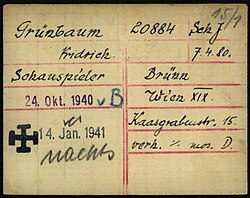 15/1
Grünbaum 20884 Sch J
Fridrich. 7.4.80.
Schauspieler Brünn
24. Okt. 1940 v B Wien XIX.
Kaasgrabenstr. 15.
14. Jan. 1941 verh. ⁒ mos. D.
nachts